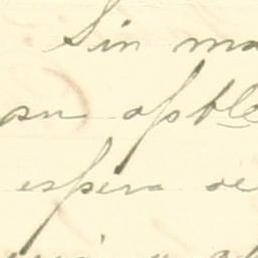 Sin ma
su apble
espera de